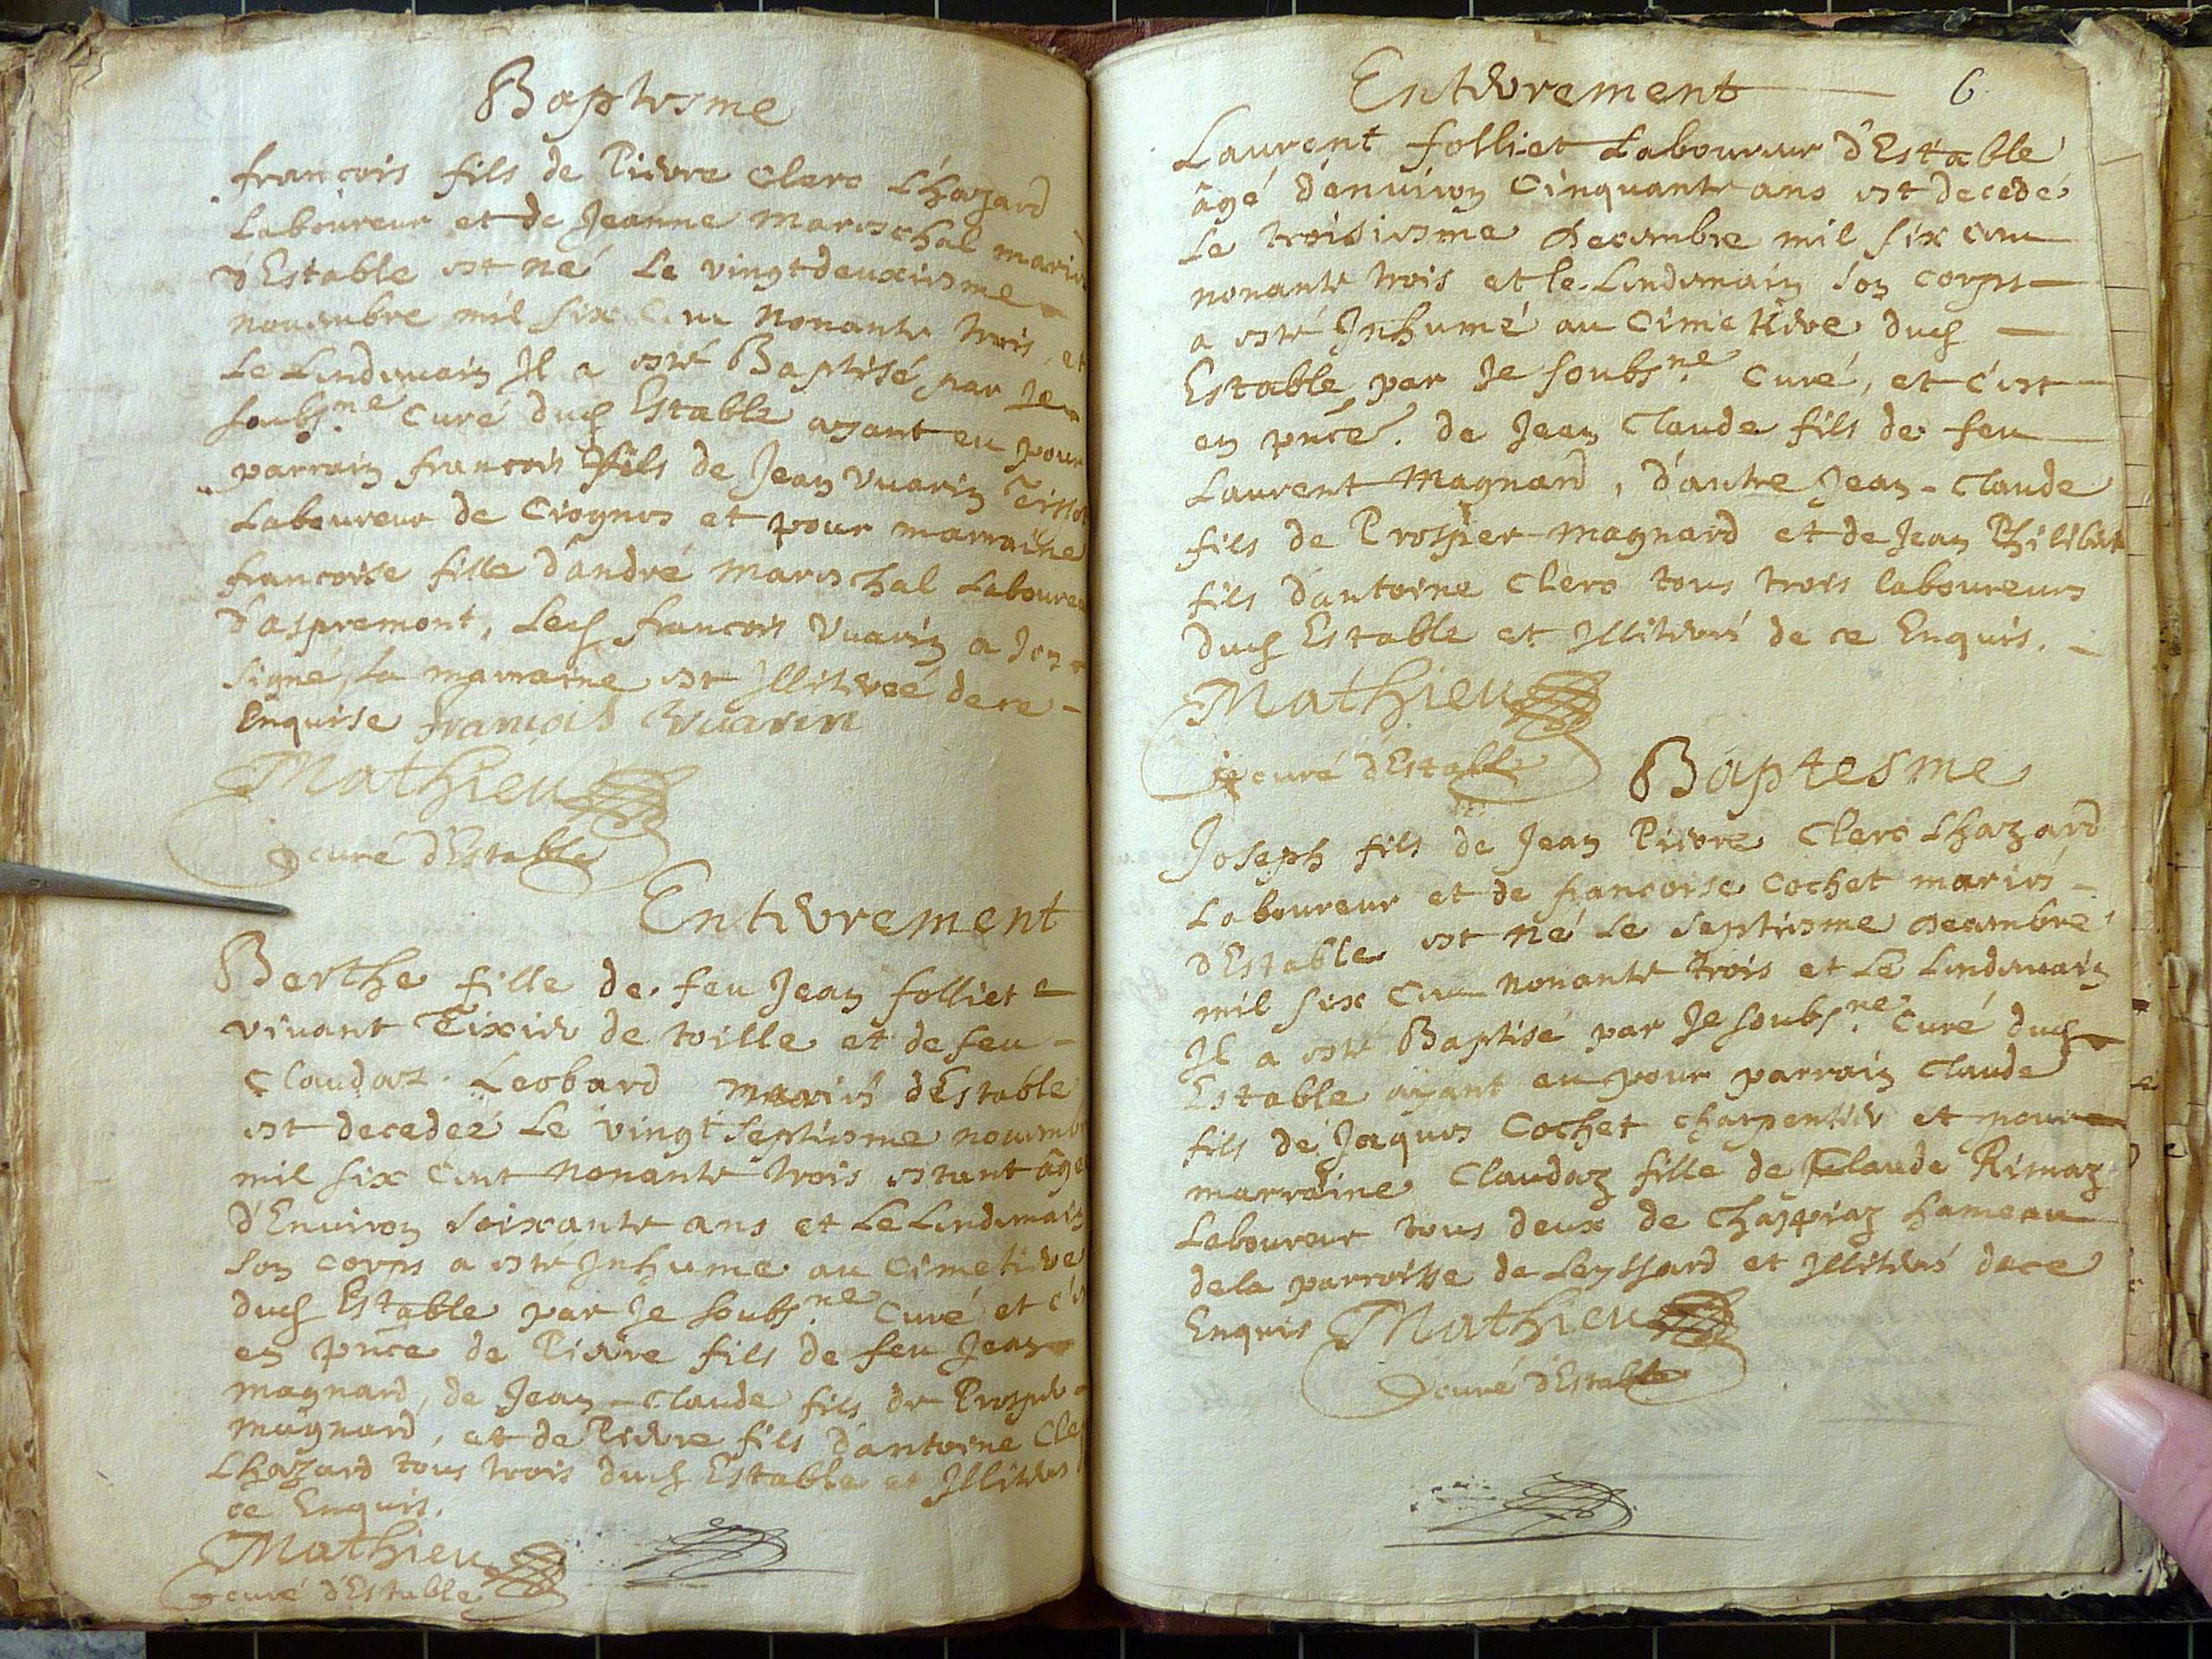 Baptesme
françois fils de Pierre Clerc Lhazard
Laboureur et de Jeanne Mareschal mariés
d'Estable est né Le vingtdeuxiesme
nouembre mil six Cent Nonante trois, et
Le Lendemain Il a esté Baptisé par Je
soubs.ne Curé dud Estable ayant eu pour
parrain françois fils de Jean Vuarin Tissot
Laboureur de Ciognes et pour marraine
francoise fille d'andré Mareschal Laboureur
d'aspremont, Led francois Vuarin a Icy
signé, La marraine est Illiterée de ce
Enquise françois Vuarin
Mathieu
curé d'Estable
Enterrement
Berthe fille de feu Jean folliet
viuant Tixier de toille et de feu
Claudaz Leobard mariés d'Estable
est decedeé Le vingt septiesme nouembre
mil six Cent Nonante trois estant âgé
d'Environ soixante ans et Le Lendemain
son corps a esté Inhumé au Cimetiere
dud Estable par Je soubs.ne Curé et c'est
en pnce de Pierre fils de feu Jean
magnard, de Jean-Claude fils de Prosper
magnard, et de Pierre fils d'antoine Clerc
Lhazard tous trois dud Estable et Illiterés
ce Enquis.
Mathieu
curé d'Estable
Enterrement 6
Laurent folliet Laboureur d'Estable
âgé d'enuiron Cinquante ans est decedé
Le troisiesme decembre mil six Cent
nonante trois et le Lendemain son corps
a esté Inhumé au Cimetiere dud
Estable par Je soubs.ne Curé, et c'est
en pnce. de Jean Claude fils de feu
Laurent Magnard, d'autre Jean-Claude
fils de Prosper magnard et de Jean Philibert
fils d'antoine Clerc tous trois laboureurs
dud Estable et Illiterés de ce Enquis.
Mathieu
curé d'Estable
Baptesme
Joseph fils de Jean Pierre Clerc Lhazard
Laboureur et de francoise Cochet mariés
d'Estable est né Le septiesme decembre
mil six Cent Nonante trois et Le Lendemain
Il a esté Baptisé par Je soubs.ne Curé dud
Estable ayant eu pour parrain Claude
fils de Jaques Cochet charpentier et pour
marraine Claudaz fille de Claude Rimaz
Laboureur tous deux de Chappiaz hameau
de la parroisse de Leyssard et Illiterés de ce
Enquis Mathieu
curé d'Estable